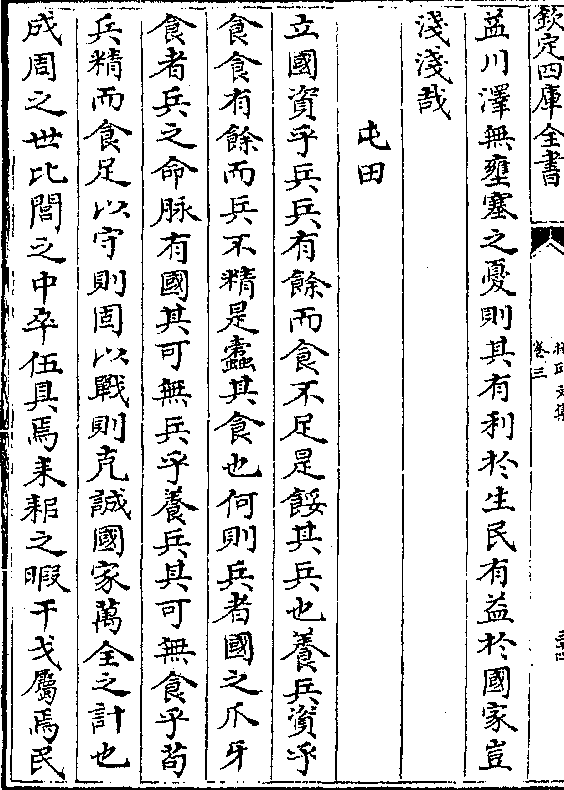 欽定四庫全書
卷三
益川澤無壅塞之憂則其有利於生民有益於國家豈
淺淺哉
屯田
立國資乎兵兵有餘而食不足是餒其兵也養兵資乎
食食有餘而兵不精是蠧其食也何則兵者國之爪牙
食者兵之命脉有國其可無兵乎養兵其可無食乎苟
兵精而食足以守則固以戰則克誠國家萬全之計也
成周之世比閭之中卒伍具焉耒耜之暇干戈屬焉民